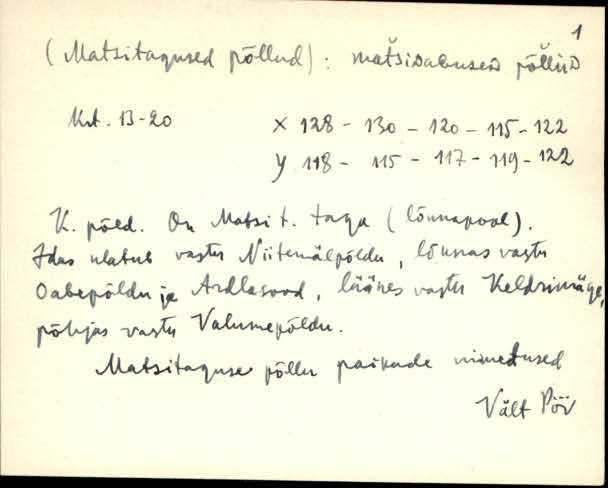 1
(Matsitagused põllud): matsiᴅaɢuseᴅ põlluᴅ
Krt. 13-20 X 128 - 130 - 120 - 115 - 122
y 118 - 115 - 117 - 119 - 122
K. põld. On Matsi t. taga (lõunapool).
Idas ulatub vastu Niitemälpõldu, lõunas vastu
Oabepõldu ja Ardlasood, läänes vastu Keldrimäge,
põhjas vastu Valumepõldu.
Matsitaguse põllu paikade nimetused
Vält